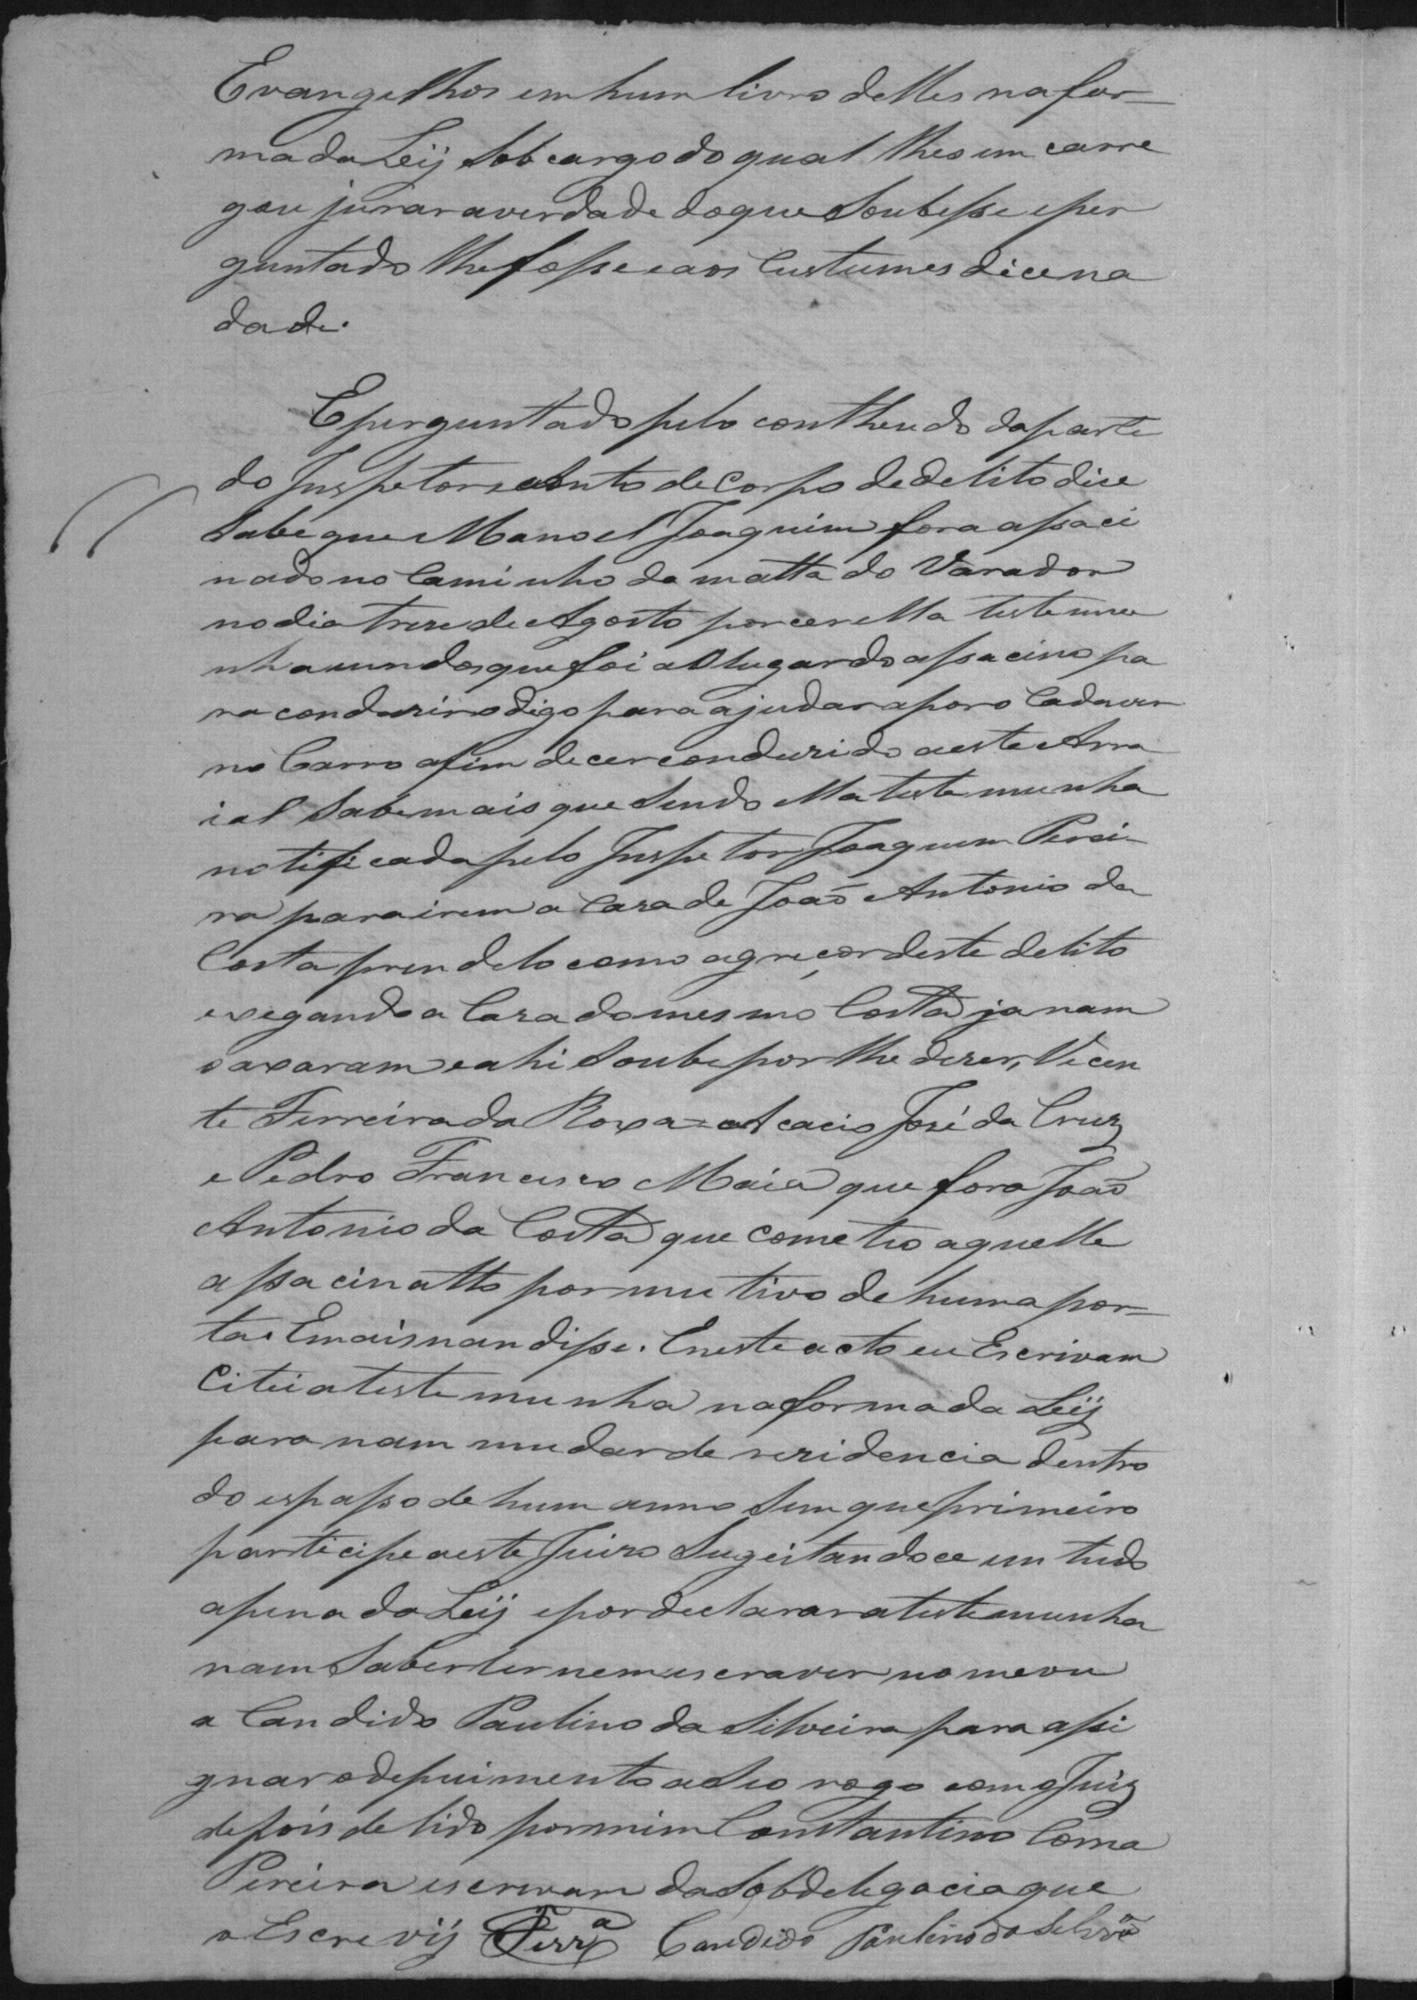 Evangelhos em hum livro delles na for-
ma da Leij Sob cargo do qual lhes em carre
gou jurar a verdade do que Soubesse e per
guntado lhe fosse e aos Custumes dice na
da de.
E perguntado pelo contheudo da parte
do Juspetor e Auto de Corpo de delito dice
Sabe que Manoel Joaquim fora assaci
nado no Caminho da matta do Varador
no dia treze de Agosto por cer ella testemu
nha um dos que foi a o lugar do assacino pa
ra conduziro digo para ajudar a por o Cadaver
no Carro afim de cer conduzido a este Arra
ial Sabe mais que Sendo ella testemunha
notificada pelo Juspetor Joaquim Perei-
ra para irem a Caza de João Antonio da
Costa prendelo como agreçor deste delito
e xegando a Caza do mesmo Costa ja nam
o axaram e ahi Soube por lhe dizer, Vicen
te Ferreira da Roxa = Acacio José da Cruz
e Pedro Francisco Maia que fora João
Antonio da Costa que cometeo aquelle
assacinatto por mutivo de huma por-
ta. E mais nan disse. E neste acto eu Escrivam
Citei a testemunha na forma da Leij
para nam mudar de rezidencia dentro
do espasso de hum anno Sem que primeiro
participe a este Juizo Sugeitandoce em tudo
a pena da Leij e por declarar a testemunha
nam Saber ler nem escraver nomeou
a Candido Paulino da Silveira para assi
gnar o depuimento a Seo rogo com o Juiz
depois de lido por mim Constantino Corna
Pereira escrivam da Sobdelegacia que
o Escrevij Ferrª Candido Paulino da Silvrª